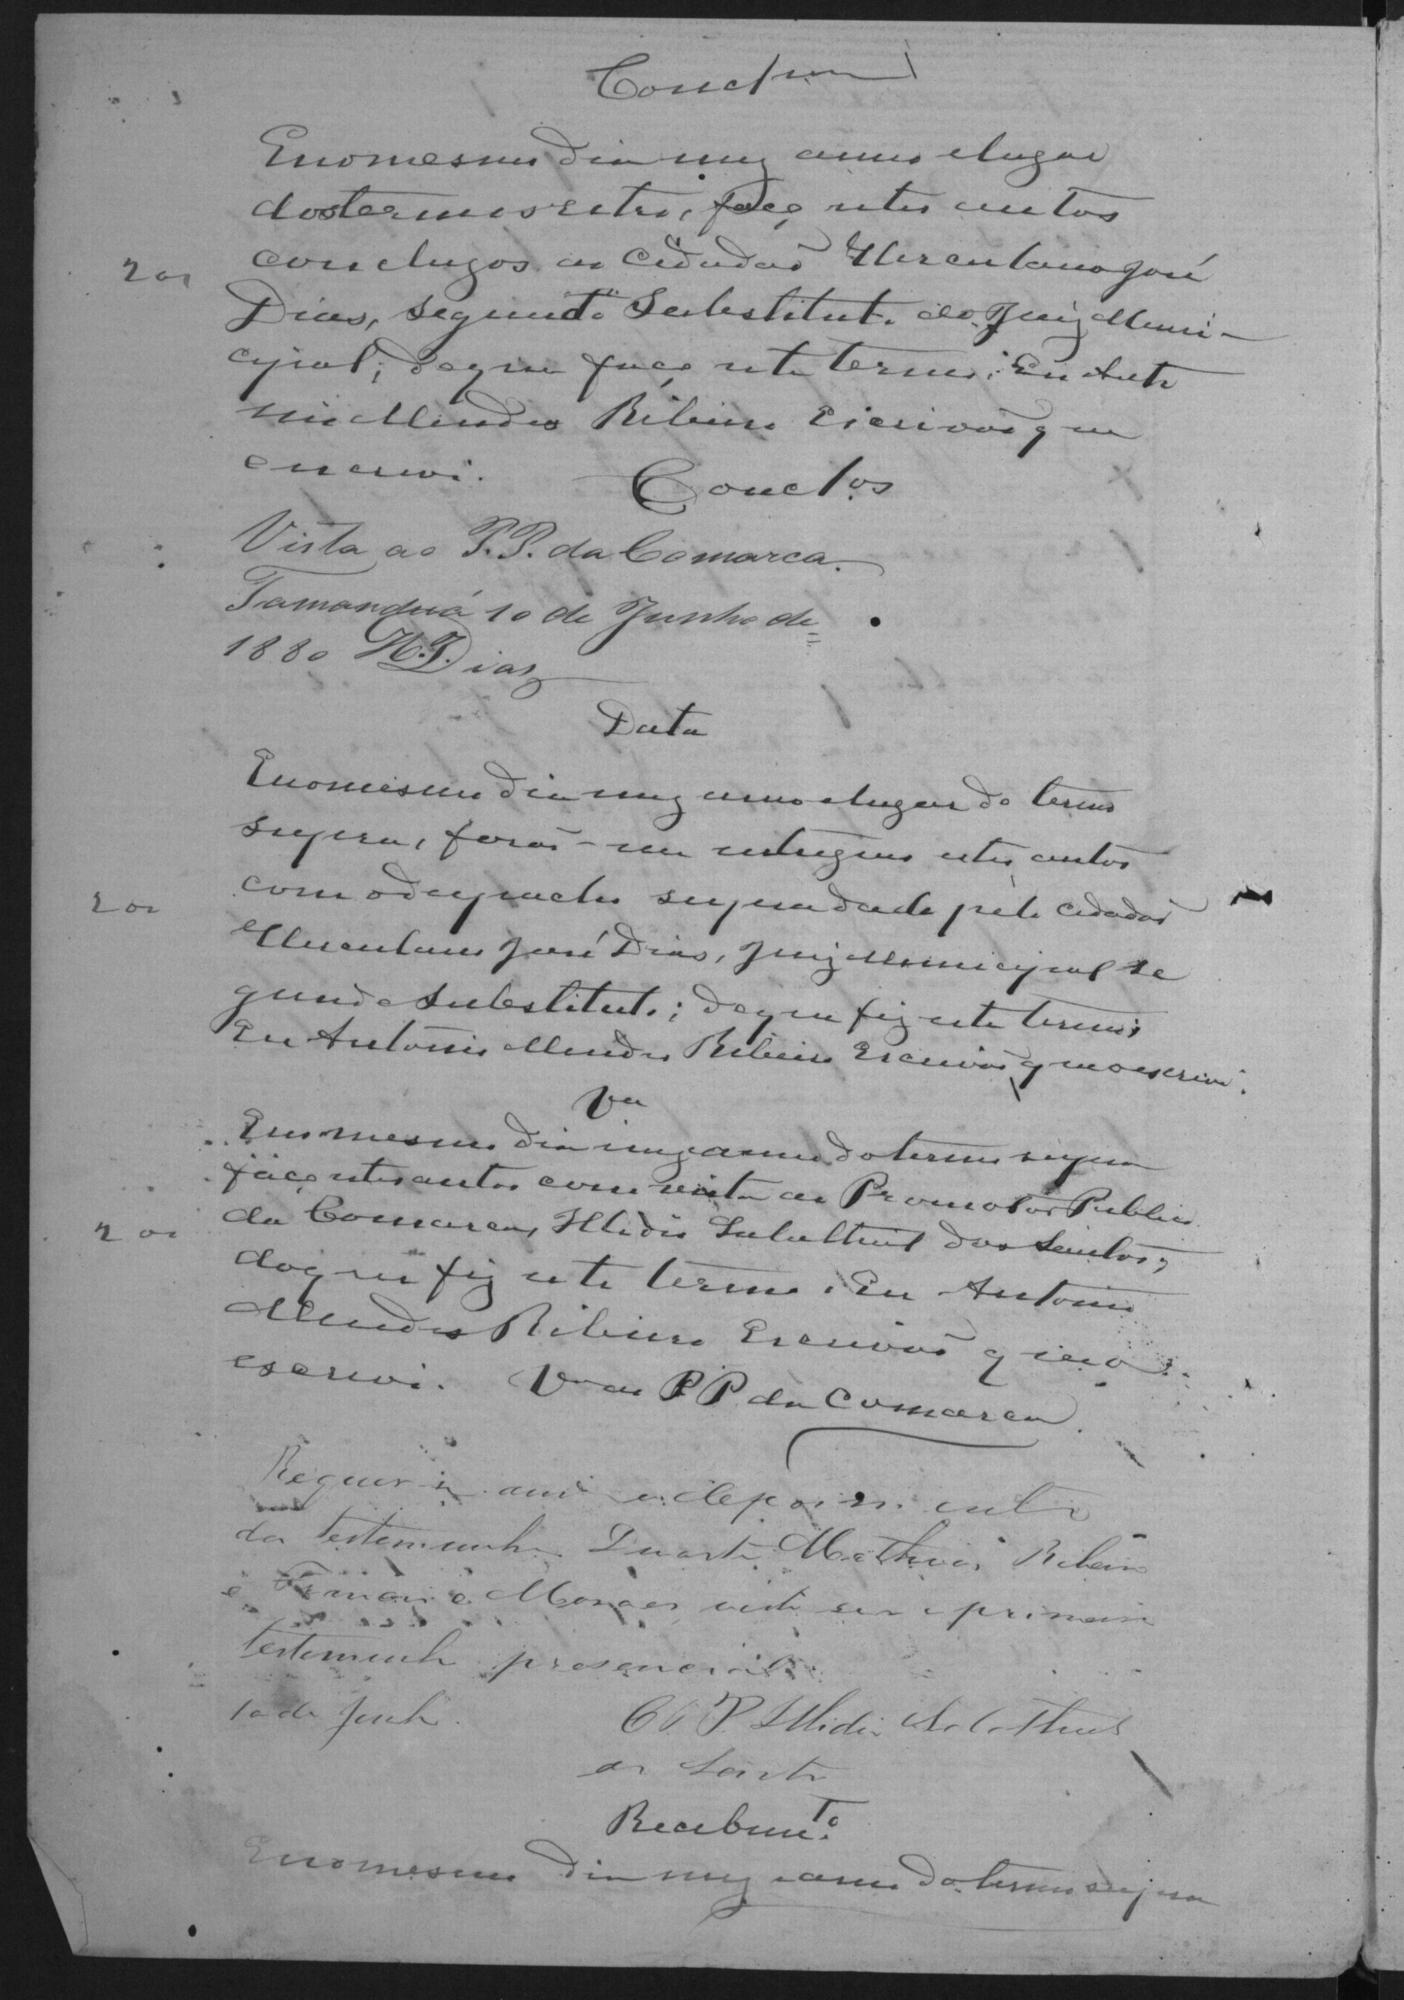 Conclusam
E no mesmo dia mez anno e lugar
do termo retro, faço estes autos
conclusos ao Cidadão Herculano José
200
Dias, segundo Substituto do Juiz Muni-
cipal; de que faço este termo. Eu Anto
nio Mendes Ribeiro Escrivão que
escrevi. Conclos
Vista ao P. P. da Comarca.
Tamanduá 10 de Junho de
1880 H. J. Dias
Data
E no mesmo dia mez anno e lugar do termo
supra, forão-me entregues estes autos
com o despacho supra dado pelo cidadão
200
Herculano José Dias, Juiz Municipal se
gundo Substituto; de que fiz este termo;
Eu Antonio Mendes Ribeiro Escrivão que o escrevi.
Va
E no mesmo dia mez e anno do termo supra
faço estes autos com vista ao Promotor Publico
da Comarca, Illidio Salathiel dos Santos;
200
do que fiz este termo. Eu Antonio
Mendes Ribeiro Escrivão que o
escrevi. Va ao P P da Comarca
Requeiro o depoimento
da testemunha Duarte Mathias Ribeiro
e Moraes visto ser a primeira
testemunha presencial.
10 de Junho. O P. P. Illidio Salathiel
dos Santos
Recebimto
E no mesmo dia mez e anno do termo supra